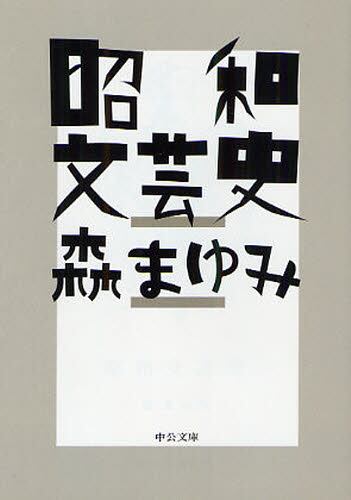 昭和
文芸史
森まゆみ
中公文庫